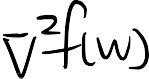 ∇²f(w)